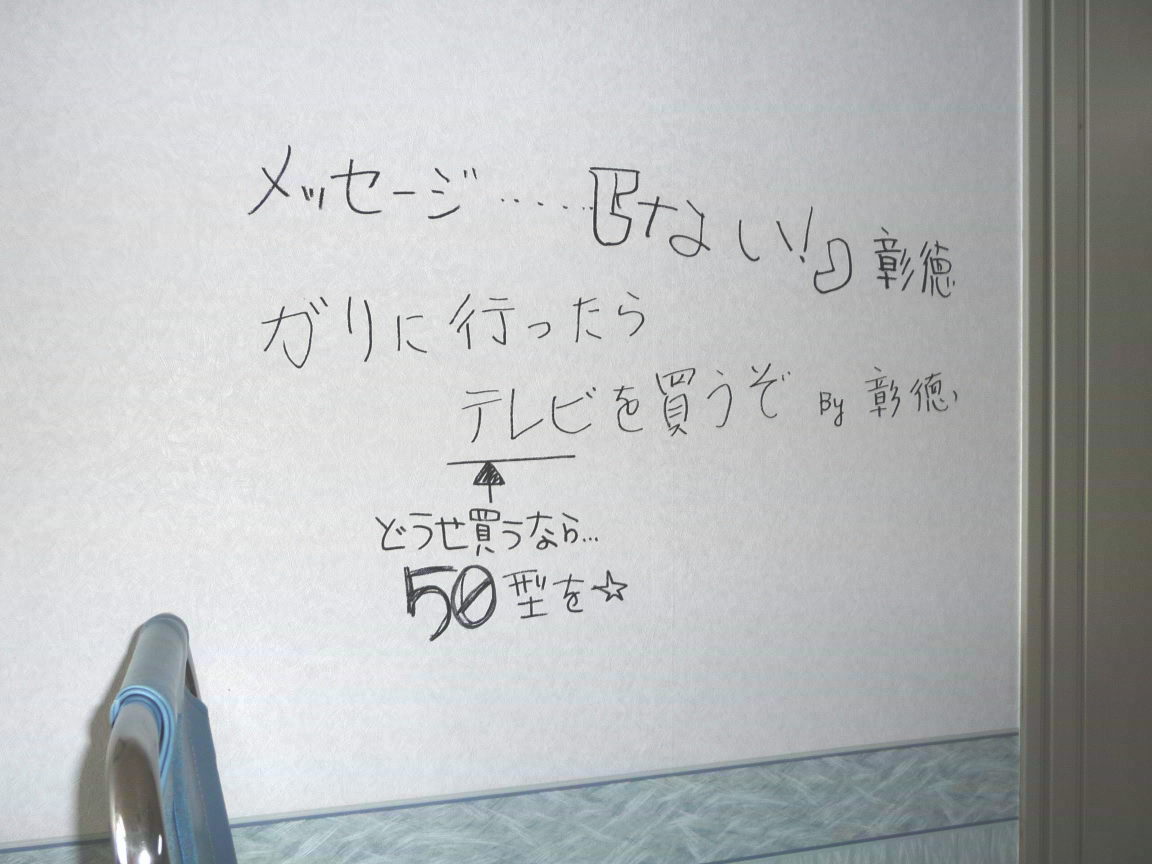 メッセージ……『ない!』彰徳
ガリに行ったら
テレビを買うぞ By 彰徳
どうせ買うなら…
50型を☆